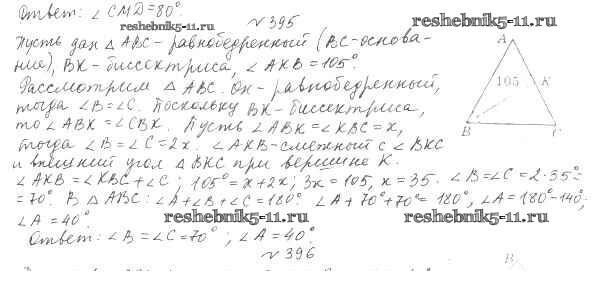 Ответ: ∠ CMD=80°
reshebnik5-11.ru
№395
reshebnik5-11.ru
Пусть дан △ ABC - равнобедренный (BC-основа-
ние), BK - биссектриса, ∠ AKB = 105°.
Рассмотрим △ ABC. Он - равнобедренный,
тогда ∠B=∠C. Поскольку BK-биссектриса,
то ∠ABK=∠CBK. Пусть ∠ABK=∠KBC=x,
тогда ∠B=∠C=2x. ∠AKB-смежный с ∠BKC
и внешний угол △BKC при вершине K.
∠AKB=∠KBC+∠C; 105°=x+2x; 3x=105, x=35. ∠B=∠C=2·35°=
=70°. В △ABC: ∠A+∠B+∠C=180°. ∠A+70°+70°=180°, ∠A=180°-140°;
∠A=40°.
reshebnik5-11.ru
reshebnik5-11.ru
Ответ: ∠B=∠C=70°; ∠A=40°.
№396
A
105
K
B
C
B